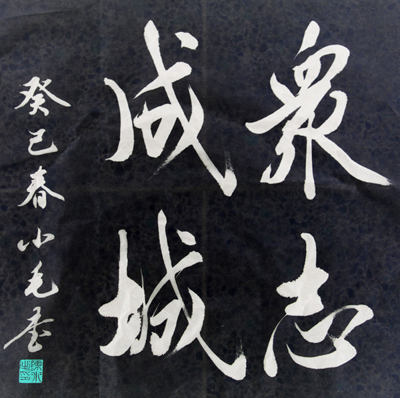 眾志
成城
癸巳春小毛書